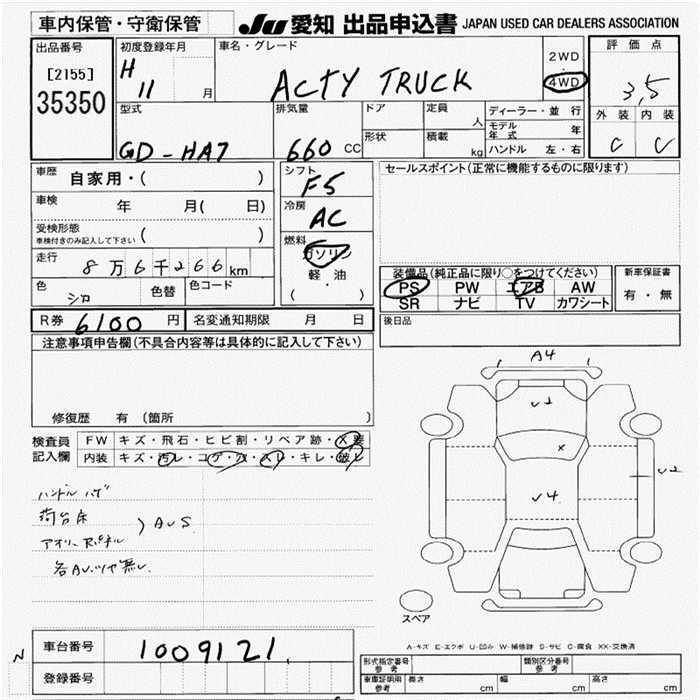 車内保管・守衛保管
JU 愛知 出品申込書 JAPAN USED CAR DEALERS ASSOCIATION
出品番号
[2155]
35350
初度登録年月
H 11 月
車名・グレード
ACTY TRUCK
2WD
・
4WD
評価点
3,5
外装 内装
C C
型式
GD-HA7
排気量
660 CC
ドア
形状
定員 人
積載 kg
ディーラー・並行
モデル年式 年
ハンドル 左・右
車歴 自家用・( )
車検 年 月( 日)
受検形態
車検付きのみ記入して下さい ( )
走行 8万6千266km
色 シロ 色替 色コード
シフト
F5
冷房
AC
燃料
ガソリン
軽・油
( )
セールスポイント(正常に機能するものに限ります)
装備品(純正品に限り○をつけてください)
PS PW エアB AW
SR ナビ TV カワシート
新車保証書
有・無
R券 6100 円 名変通知期限 月 日
後日品
注意事項申告欄(不具合内容等は具体的に記入して下さい)
修復歴 有 (箇所 )
検査員
記入欄
FW キズ・飛石・ヒビ割・リペア跡・X要
内装 キズ・汚レ・コゲ・穴・スレ・キレ・破レ
ハンドル ハゲ
荷台床
アオリ
AUS
各AU.ツヤ無し
A4
U2
X
U4
U2
スペア
A-キズ E-エクボ U-凹み W-補修跡 S-サビ C-腐食 XX-交換済
車台番号 1009121
登録番号
N
形式指定番号
参考
類別区分番号
参考
車庫証明用
参考
長さ cm 幅 cm 高さ cm